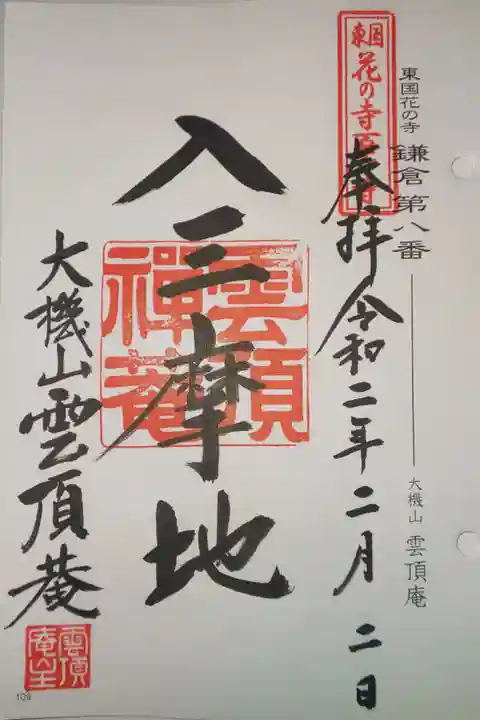 東国花の寺 鎌倉第八番 大機山 雲頂庵
東国花の寺百ヶ寺
奉拝 令和二年二月二日
入三摩地
雲頂禅菴
大機山雲頂菴
雲頂庵主
109